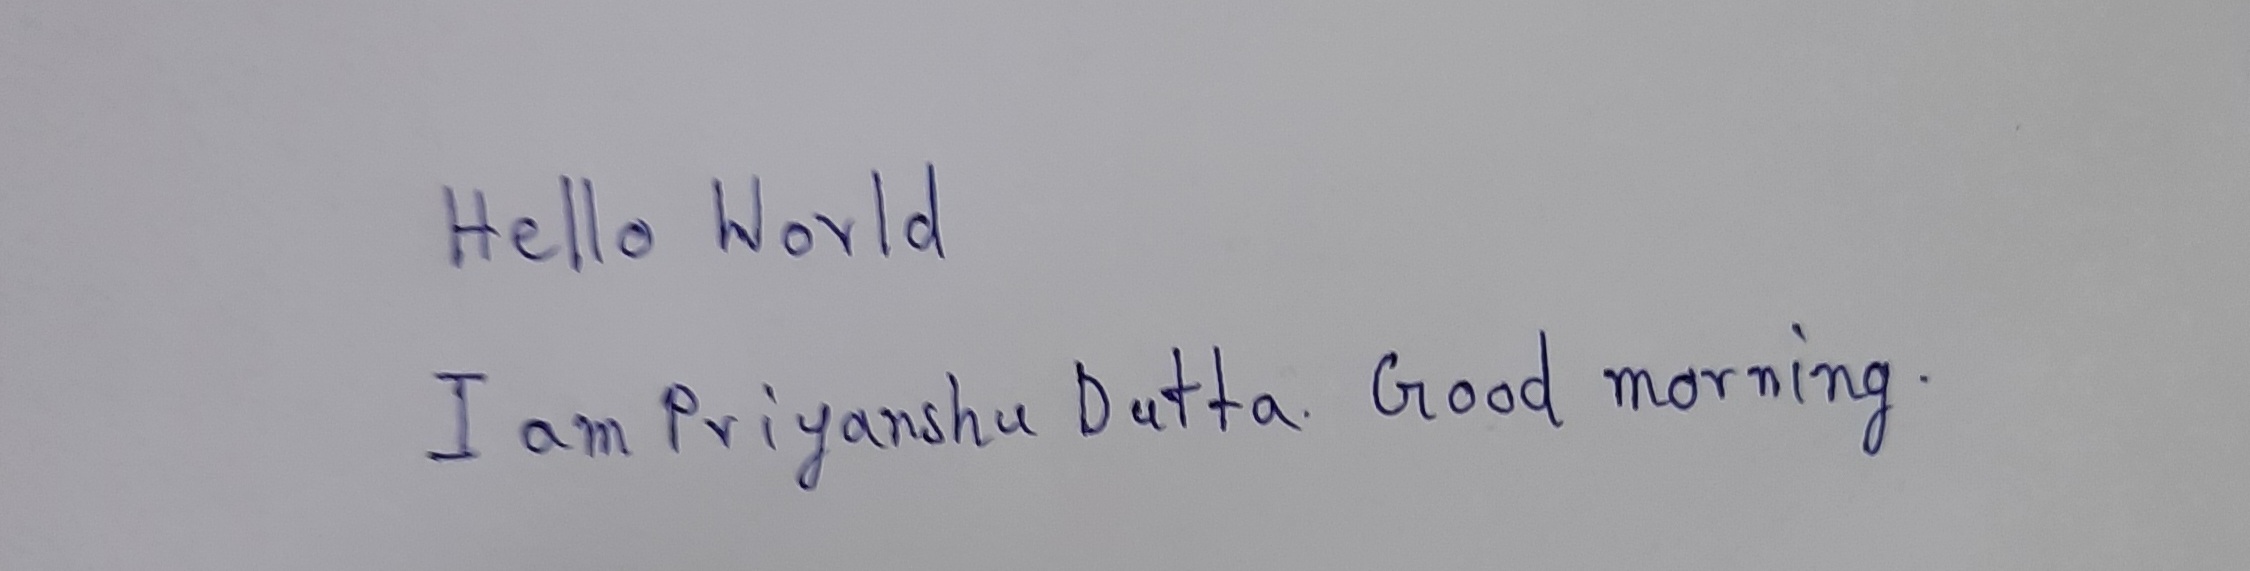 Hello World
I am Priyanshu Dutta. Good morning.